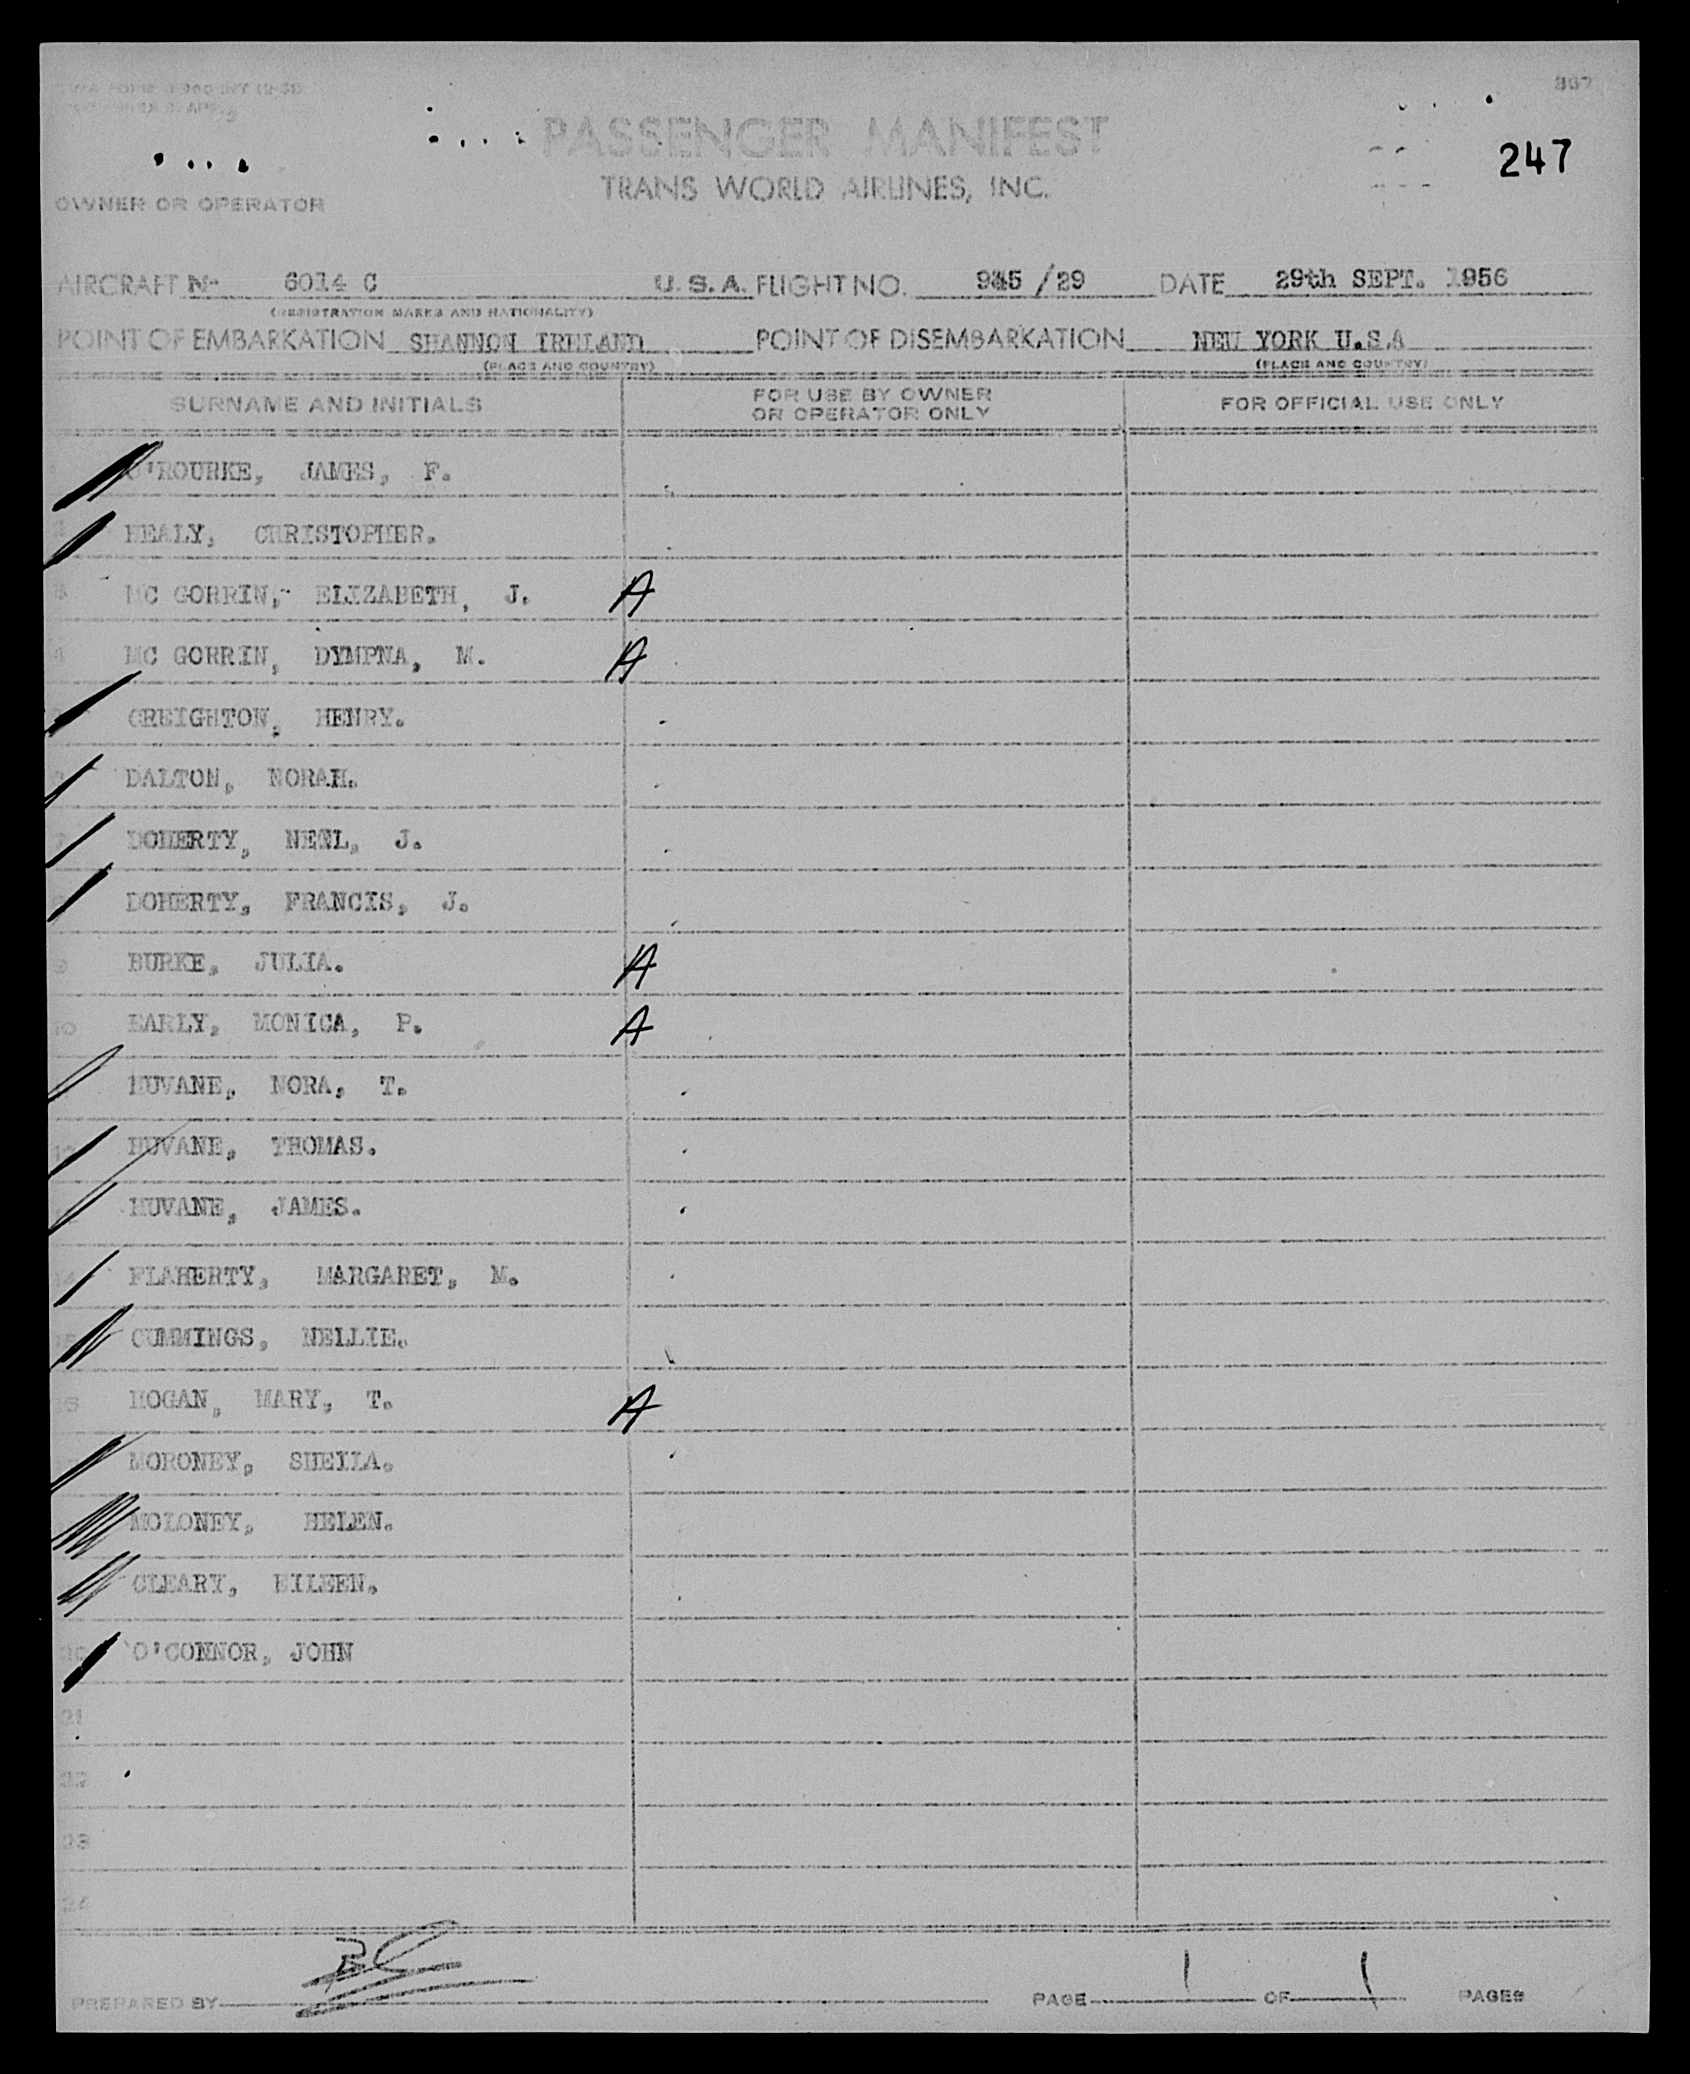 367
PASSENGER MANIFEST
247
TRANS WORLD AIRLINES, INC.
OWNER OR OPERATOR
AIRCRAFT No 6014 C U.S.A. FLIGHT NO. 945 /29 DATE 29th SEPT. 1956
(REGISTRATION MARKS AND NATIONALITY)
POINT OF EMBARKATION SHANNON IRELAND POINT OF DISEMBARKATION NEW YORK U.S.A
(PLACE AND COUNTRY) (PLACE AND COUNTRY)
SURNAME AND INITIALS FOR USE BY OWNER OR OPERATOR ONLY FOR OFFICIAL USE ONLY
O'ROURKE, JAMES, F.
HEALY, CHRISTOPHER.
3 MC GORRIN, ELIZABETH, J. A
4 MC GORRIN, DYMPNA, M. A
CREIGHTON, HENRY.
DALTON, NORAH.
7 DOHERTY, NEIL, J.
DOHERTY, FRANCIS, J.
9 BURKE, JULIA. A
10 EARLY, MONICA, P. A
HUVANE, NORA, T.
12 HUVANE, THOMAS.
HUVANE, JAMES.
14 FLAHERTY, MARGARET, M.
15 CUMMINGS, NELLIE.
16 HOGAN, MARY, T. A
MORONEY, SHEILA.
MOLONEY, HELEN.
CLEARY, EILEEN.
20 O'CONNOR, JOHN
21
22
23
24
PREPARED BY PAGE 1 OF 1 PAGES